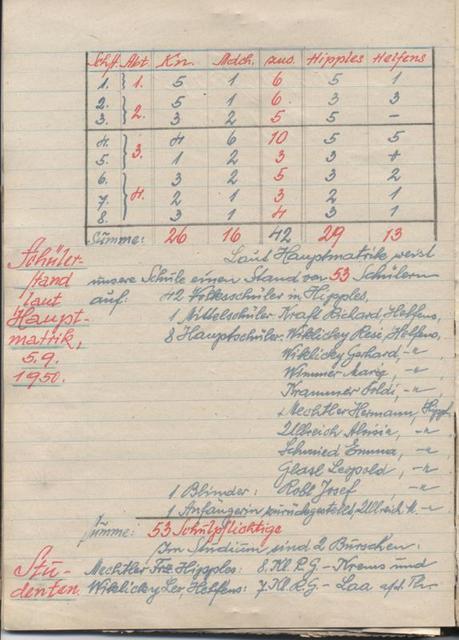 Schft. Abt. Kn. Mdch. zus. Hipples Heifens
1. } 1. 5 1 6 5 1
2. 5 1 6 3 3
3. } 2. 3 2 5 5 -
4. 4 6 10 5 5
5. } 3. 1 2 3 3 +
6. 3 2 5 3 2
7. } 4. 2 1 3 2 1
8. 3 1 4 3 1
Summe: 26 16 42 29 13
Schüler-
stand
laut
Haupt-
matrik,
5.9.
1950.
Laut Hauptmatrik weist
unsere Schule einen Stand von 53 Schülern
auf: 42 Volksschüler in Hipples,
1 Mittelschüler Kraft Richard Helfens,
8 Hauptschüler: Wiklicky Resi, Helfens,
Wiklicky Gerhard, -"-
Wimmer Marg, -"-
Krammer Poldi, -"-
Mechtler Hermann, Hippl.
Ullreich Aloisia, -"-
Schmied Emma, -"-
Glasl Leopold, -"-
1 Blinder: Josef -"-
1 Anfängerin zurückgestellt, Ullreich -"-
Summe: 53 Schulpflichtige
Stu-
denten.
Im Studium sind 2 Burschen:
Mechtler Frz. Hipples: 8. Kl. R.G. - Krems und
Wiklicky Leo Helfens: 7. Kl. R.G. - Laa a/d. Th.